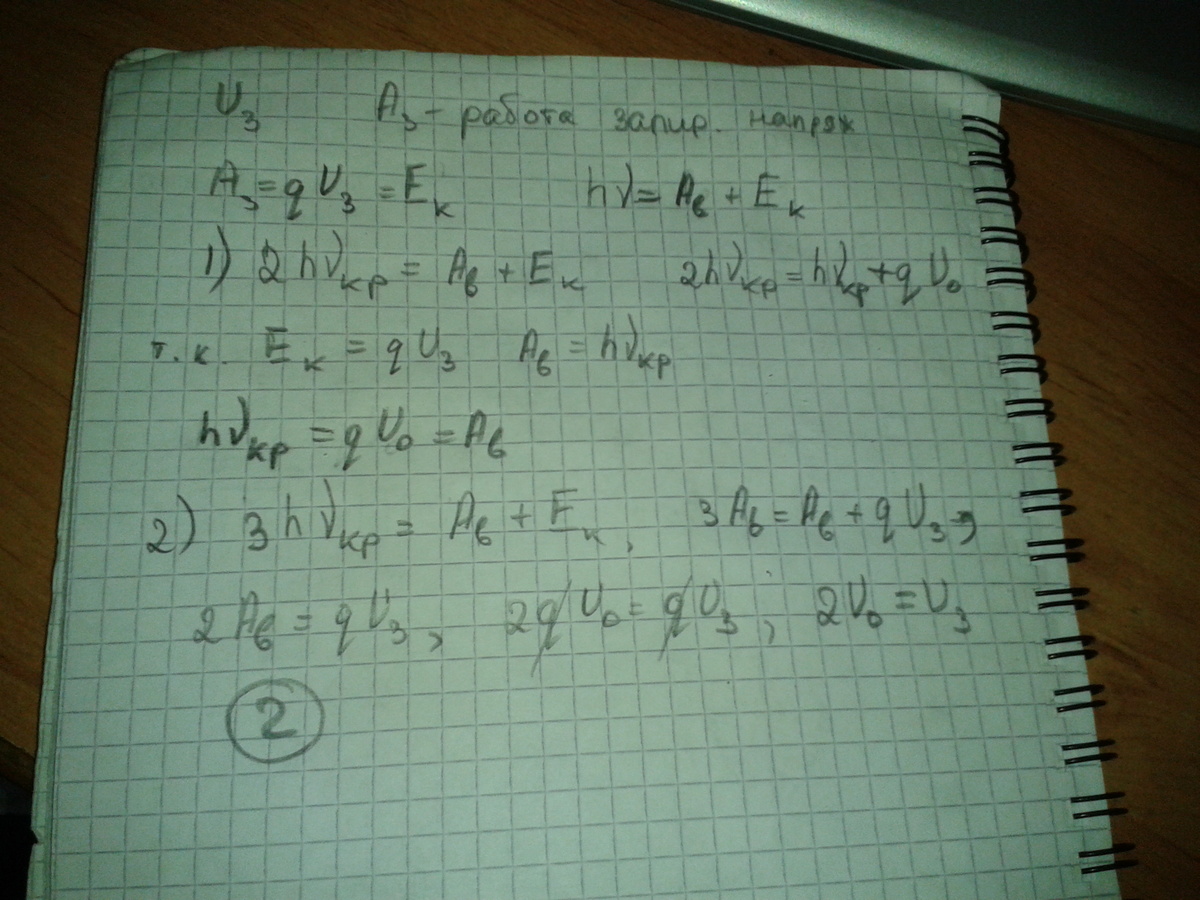 U₃ A₃ - работа запир. напряж
A₃ = qU₃ = Eₖ hν = Aв + Eₖ
1) 2hνкр = Aв + Eₖ 2hνкр = hνкр + qU₀
т.к. Eₖ = qU₃ Aв = hνкр
hνкр = qU₀ = Aв
2) 3hνкр = Aв + Eₖ, 3Aв = Aв + qU₃ ⇒
2Aв = qU₃, 2qU₀ = qU₃; 2U₀ = U₃
2